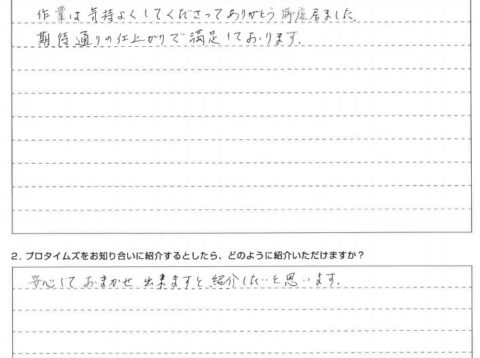 作業は気持よくしてくださってありがとう御座居ました。
期待通りの仕上がりで満足しております。
2. プロタイムズをお知り合いに紹介するとしたら、どのように紹介いただけますか？
安心しておまかせ出来ますと紹介したいと思います。